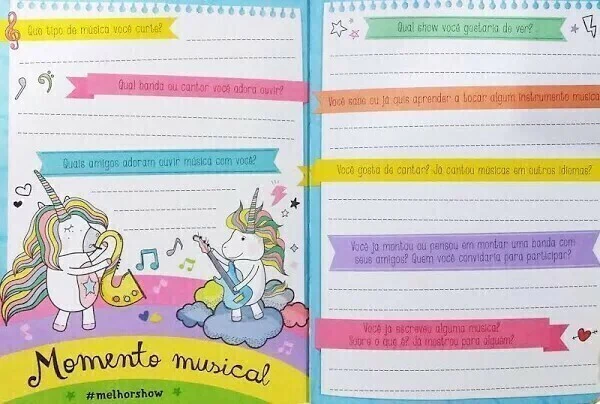 Que tipo de música você curte?
Qual banda ou cantor você adora ouvir?
Quais amigos adoram ouvir música com você?
Momento musical
#melhorshow
Qual show você gostaria de ver?
Você sabe ou já quis aprender a tocar algum instrumento musical
Você gosta de cantar? Já cantou músicas em outros idiomas?
Você já montou ou pensou em montar uma banda com
seus amigos? Quem você convidaria para participar?
Você já escreveu alguma música?
Sobre o quê? Já mostrou para alguém?